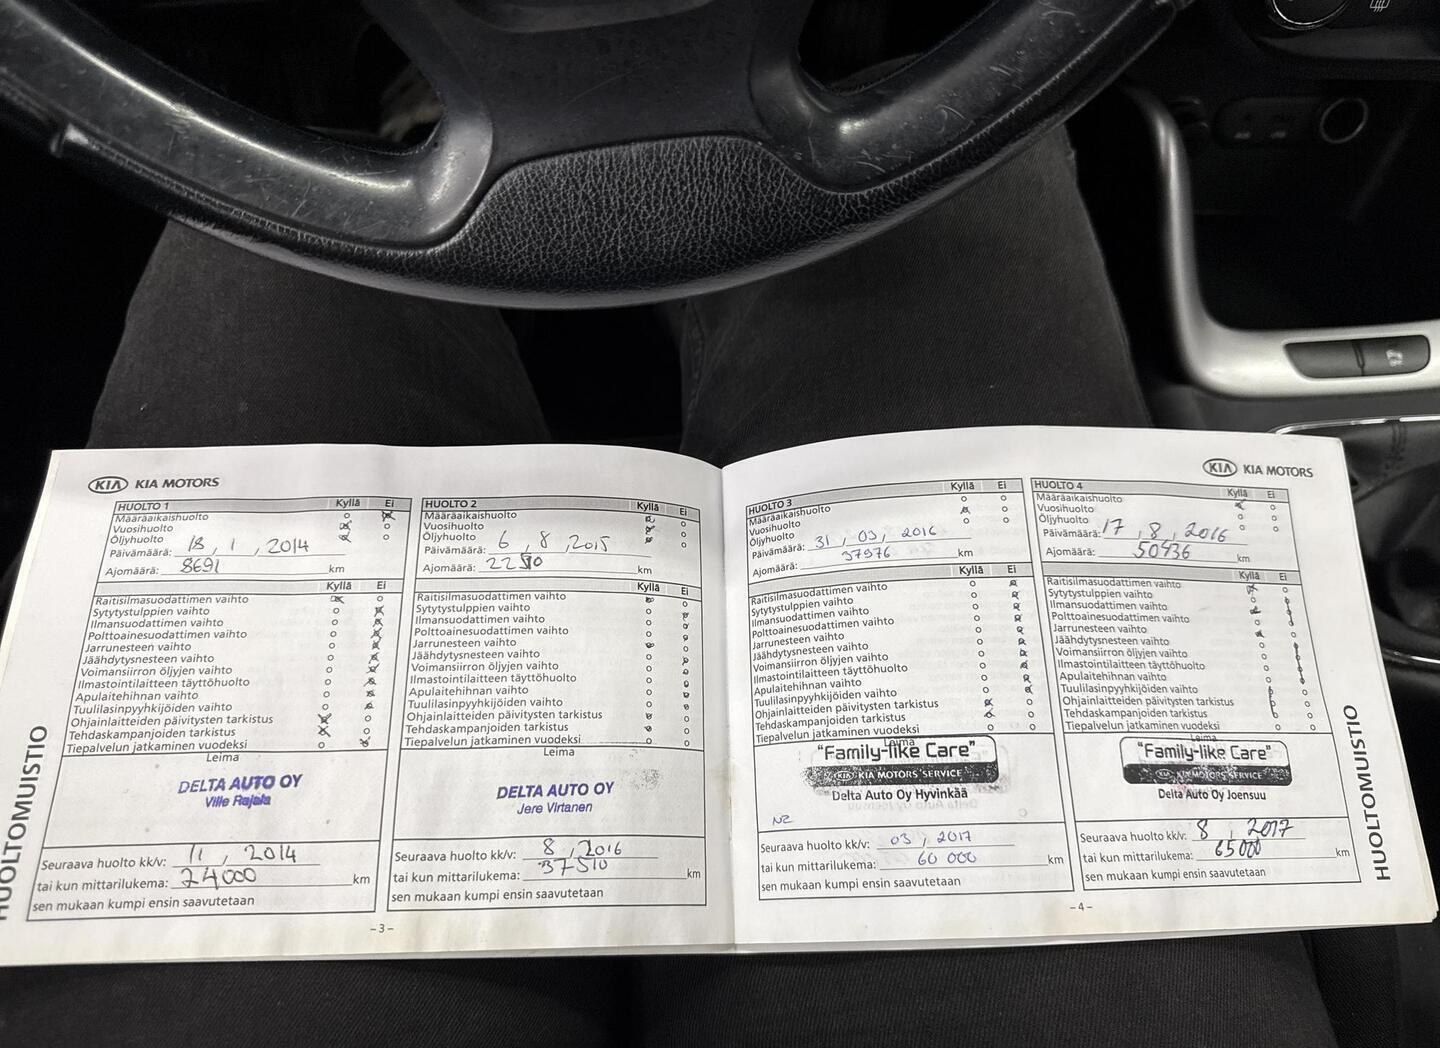 KIA KIA MOTORS
HUOLTO 1 Kyllä Ei
Määräaikaishuolto
Vuosihuolto
Öljyhuolto
Päivämäärä: 18, 1, 2014
Ajomäärä: 8691 km
Kyllä Ei
Raitisilmasuodattimen vaihto
Sytytystulppien vaihto
Ilmansuodattimen vaihto
Polttoainesuodattimen vaihto
Jarrunesteen vaihto
Jäähdytysnesteen vaihto
Voimansiirron öljyjen vaihto
Ilmastointilaitteen täyttöhuolto
Apulaitehihnan vaihto
Tuulilasinpyyhkijöiden vaihto
Ohjainlaitteiden päivitysten tarkistus
Tehdaskampanjoiden tarkistus
Tiepalvelun jatkaminen vuodeksi
Leima
DELTA AUTO OY
Ville Rajala
Seuraava huolto kk/v: 11, 2014
tai kun mittarilukema: 24000 km
sen mukaan kumpi ensin saavutetaan
HUOLTO 2 Kyllä Ei
Määräaikaishuolto
Vuosihuolto
Öljyhuolto
Päivämäärä: 6, 8, 2015
Ajomäärä: 22510 km
Kyllä Ei
Raitisilmasuodattimen vaihto
Sytytystulppien vaihto
Ilmansuodattimen vaihto
Polttoainesuodattimen vaihto
Jarrunesteen vaihto
Jäähdytysnesteen vaihto
Voimansiirron öljyjen vaihto
Ilmastointilaitteen täyttöhuolto
Apulaitehihnan vaihto
Tuulilasinpyyhkijöiden vaihto
Ohjainlaitteiden päivitysten tarkistus
Tehdaskampanjoiden tarkistus
Tiepalvelun jatkaminen vuodeksi
Leima
DELTA AUTO OY
Jere Virtanen
Seuraava huolto kk/v: 8, 2016
tai kun mittarilukema: 37510 km
sen mukaan kumpi ensin saavutetaan
HUOLTOMUISTIO
-3-
KIA KIA MOTORS
HUOLTO 3 Kyllä Ei
Määräaikaishuolto
Vuosihuolto
Öljyhuolto
Päivämäärä: 31, 03, 2016
Ajomäärä: 37976 km
Kyllä Ei
Raitisilmasuodattimen vaihto
Sytytystulppien vaihto
Ilmansuodattimen vaihto
Polttoainesuodattimen vaihto
Jarrunesteen vaihto
Jäähdytysnesteen vaihto
Voimansiirron öljyjen vaihto
Ilmastointilaitteen täyttöhuolto
Apulaitehihnan vaihto
Tuulilasinpyyhkijöiden vaihto
Ohjainlaitteiden päivitysten tarkistus
Tehdaskampanjoiden tarkistus
Tiepalvelun jatkaminen vuodeksi
Leima
"Family-like Care"
KIA KIA MOTORS SERVICE
Delta Auto Oy Hyvinkää
NZ
Seuraava huolto kk/v: 03, 2017
tai kun mittarilukema: 60 000 km
sen mukaan kumpi ensin saavutetaan
HUOLTO 4 Kyllä Ei
Määräaikaishuolto
Vuosihuolto
Öljyhuolto
Päivämäärä: 17, 8, 2016
Ajomäärä: 50436 km
Kyllä Ei
Raitisilmasuodattimen vaihto
Sytytystulppien vaihto
Ilmansuodattimen vaihto
Polttoainesuodattimen vaihto
Jarrunesteen vaihto
Jäähdytysnesteen vaihto
Voimansiirron öljyjen vaihto
Ilmastointilaitteen täyttöhuolto
Apulaitehihnan vaihto
Tuulilasinpyyhkijöiden vaihto
Ohjainlaitteiden päivitysten tarkistus
Tehdaskampanjoiden tarkistus
Tiepalvelun jatkaminen vuodeksi
Leima
"Family-like Care"
KIA KIA MOTORS SERVICE
Delta Auto Oy Joensuu
Seuraava huolto kk/v: 8, 2017
tai kun mittarilukema: 65000 km
sen mukaan kumpi ensin saavutetaan
HUOLTOMUISTIO
-4-